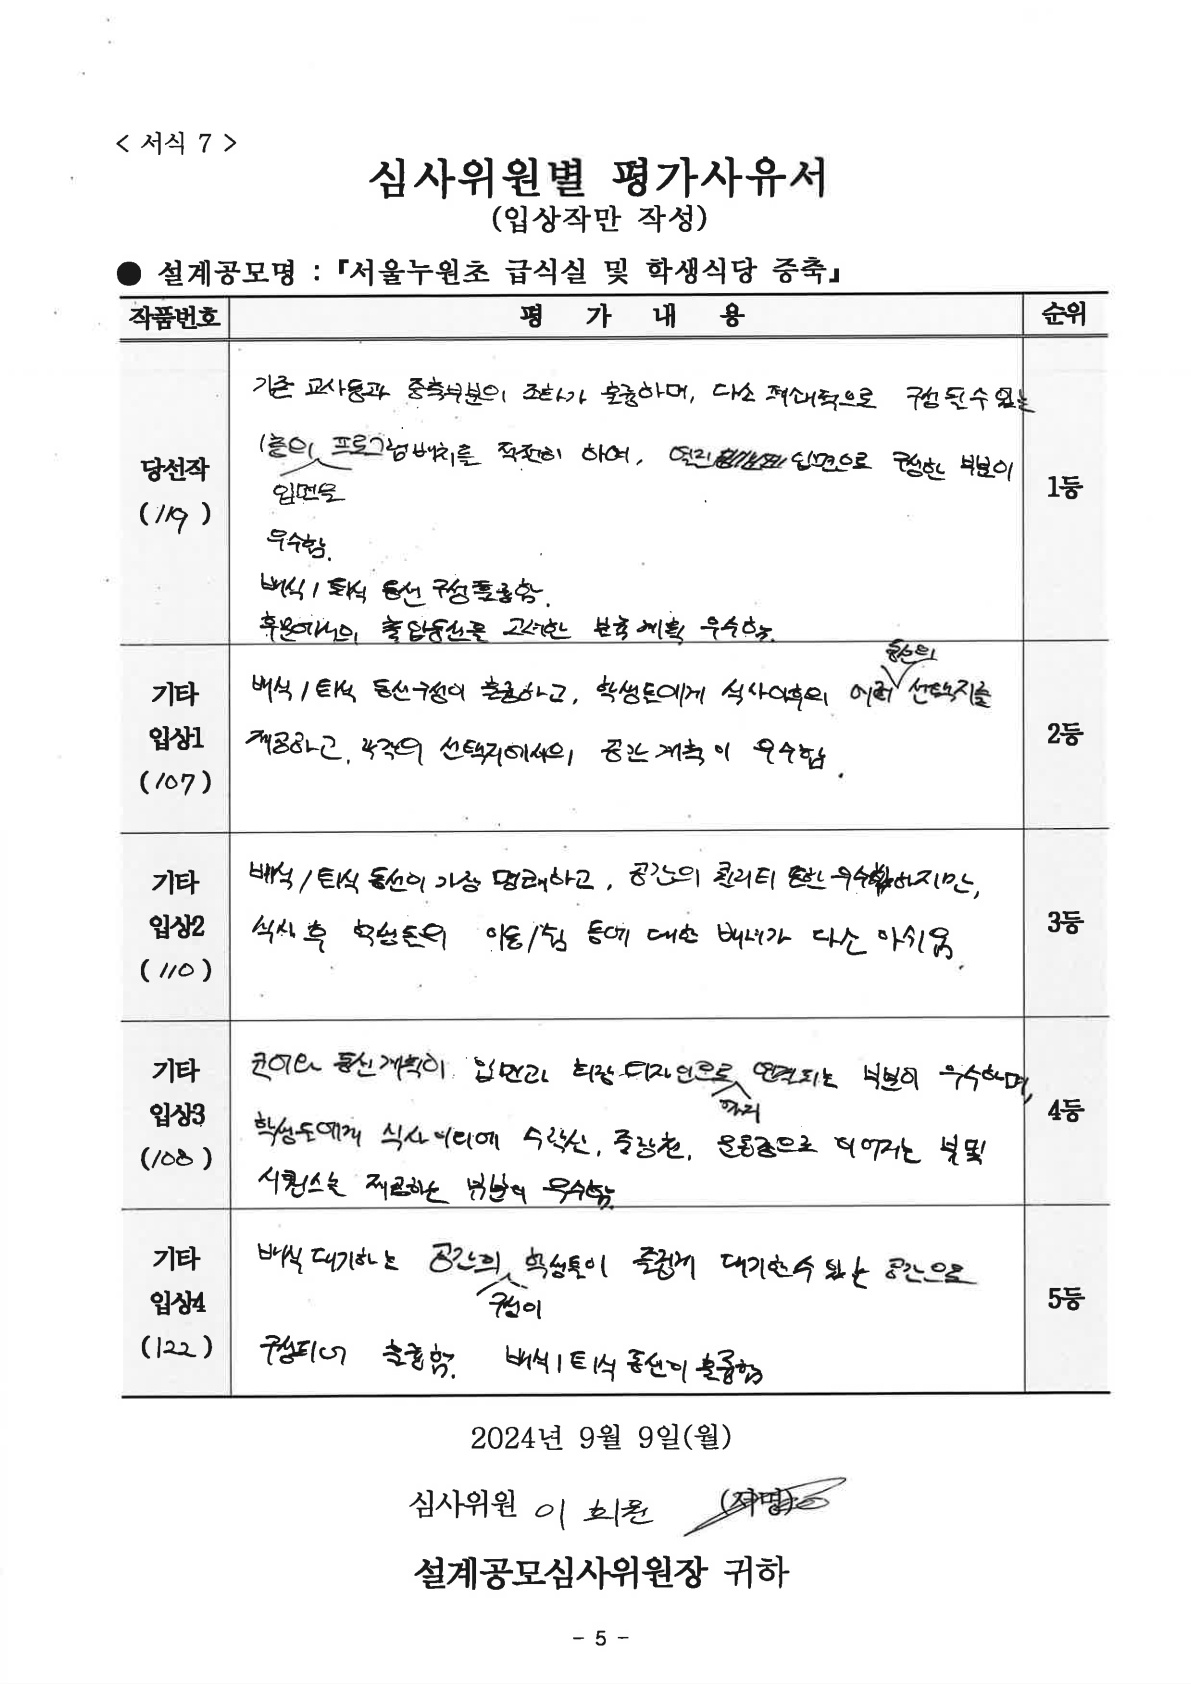 < 서식 7 >
심사위원별 평가사유서
(입상작만 작성)
● 설계공모명 : 『서울누원초 급식실 및 학생식당 증축』
작품번호 평 가 내 용 순위
당선작
(119)
기존 교사동과 증축부분의 조화가 훌륭하며, 다소 폐쇄적으로 구성될수 있는
1층의 입면을 프로그램배치를 적절히 하여, 열린 입면으로 구성한 부분이
우수함.
배식/퇴식 동선 구성 훌륭함.
후문에서의 출입동선을 고려한 분축계획 우수함.
1등
기타
입상1
(107)
배식/퇴식 동선구성이 훌륭하고, 학생들에게 식사이후의 여러 동선의 선택지를
제공하고, 각각의 선택지에서의 공간계획이 우수함.
2등
기타
입상2
(110)
배식/퇴식 동선이 가장 명쾌하고, 공간의 퀄리티 또한 우수하지만,
식사 후 학생들의 이동/쉼 등에 대한 배려가 다소 아쉬움.
3등
기타
입상3
(108)
코어와 동선계획이 입면과 외장 디자인으로 까지 연결되는 부분이 우수하며,
학생들에게 식사 마다에 수락산, 중랑천, 운동장으로 이어지는 뷰 및
시퀀스를 제공하는 부분이 우수함.
4등
기타
입상4
(122)
배식 대기하는 공간의 구성이 학생들이 즐겁게 대기할수 있는 공간으로
구성되어 훌륭함. 배식/퇴식 동선이 훌륭함
5등
2024년 9월 9일(월)
심사위원 이 희원 (서명)
설계공모심사위원장 귀하
- 5 -